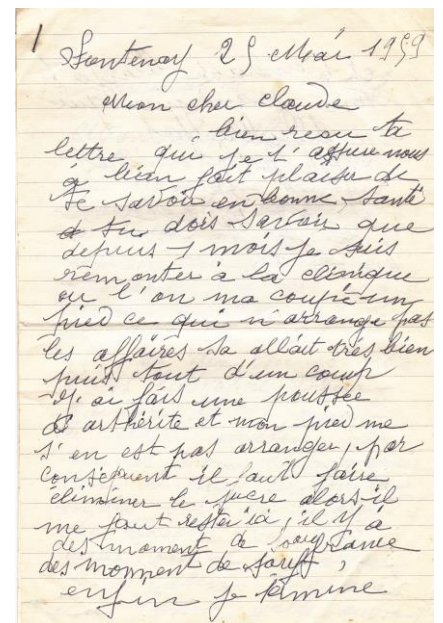 1
Fontenay 25 Mai 1959
Mon cher claude
bien recu ta
lettre qui je t'assure nous
a bien fait plaisir de
te savoir en bonne santé
tu dois savoir que
depuis 1 mois je suis
remonter à la clinique
ou l'on ma coupé un
pied ce qui n'arrange pas
les affaires sa allait très bien
puis tout d'un coup
j'ai fais une poussée
d'arthérite et mon pied me
s'en est pas arranger, par
conséquent il faut faire
éliminer le sucre alors il
me faut rester ici, il y à
des moment de souffrance
des moment de
enfin je termine